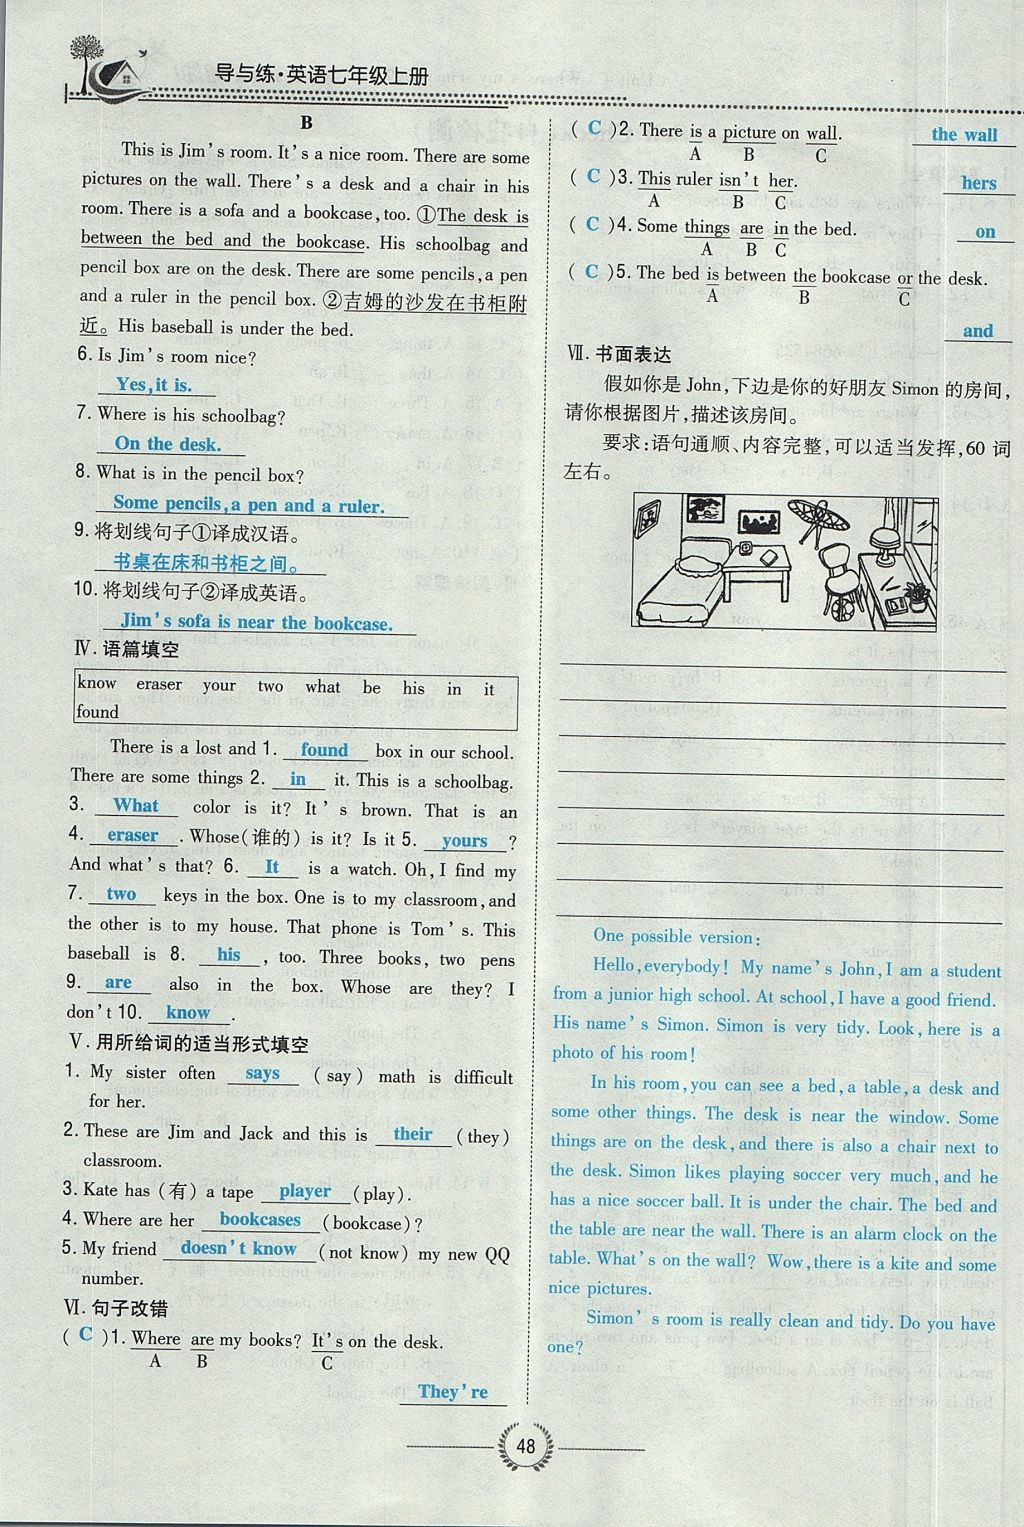 导与练·英语七年级上册
B
This is Jim's room. It's a nice room. There are some
pictures on the wall. There's a desk and a chair in his
room. There is a sofa and a bookcase, too. ①The desk is
between the bed and the bookcase. His schoolbag and
pencil box are on the desk. There are some pencils, a pen
and a ruler in the pencil box. ②吉姆的沙发在书柜附
近。His baseball is under the bed.
6. Is Jim's room nice?
Yes, it is.
7. Where is his schoolbag?
On the desk.
8. What is in the pencil box?
Some pencils, a pen and a ruler.
9. 将划线句子①译成汉语。
书桌在床和书柜之间。
10. 将划线句子②译成英语。
Jim's sofa is near the bookcase.
Ⅳ. 语篇填空
know eraser your two what be his in it
found
There is a lost and 1. found box in our school.
There are some things 2. in it. This is a schoolbag.
3. What color is it? It's brown. That is an
4. eraser. Whose(谁的) is it? Is it 5. yours?
And what's that? 6. It is a watch. Oh, I find my
7. two keys in the box. One is to my classroom, and
the other is to my house. That phone is Tom's. This
baseball is 8. his, too. Three books, two pens
9. are also in the box. Whose are they? I
don't 10. know.
Ⅴ. 用所给词的适当形式填空
1. My sister often says (say) math is difficult
for her.
2. These are Jim and Jack and this is their (they)
classroom.
3. Kate has (有) a tape player (play).
4. Where are her bookcases (bookcase)?
5. My friend doesn't know (not know) my new QQ
number.
Ⅵ. 句子改错
( C )1. Where are my books? It's on the desk.
A B C
They're
( C )2. There is a picture on wall. the wall
A B C
( C )3. This ruler isn't her. hers
A B C
( C )4. Some things are in the bed. on
A B C
( C )5. The bed is between the bookcase or the desk.
A B C
and
Ⅶ. 书面表达
假如你是 John, 下边是你的好朋友 Simon 的房间,
请你根据图片, 描述该房间。
要求: 语句通顺、内容完整, 可以适当发挥, 60 词
左右。
One possible version:
Hello, everybody! My name's John, I am a student
from a junior high school. At school, I have a good friend.
His name's Simon. Simon is very tidy. Look, here is a
photo of his room!
In his room, you can see a bed, a table, a desk and
some other things. The desk is near the window. Some
things are on the desk, and there is also a chair next to
the desk. Simon likes playing soccer very much, and he
has a nice soccer ball. It is under the chair. The bed and
the table are near the wall. There is an alarm clock on the
table. What's on the wall? Wow, there is a kite and some
nice pictures.
Simon's room is really clean and tidy. Do you have
one?
48